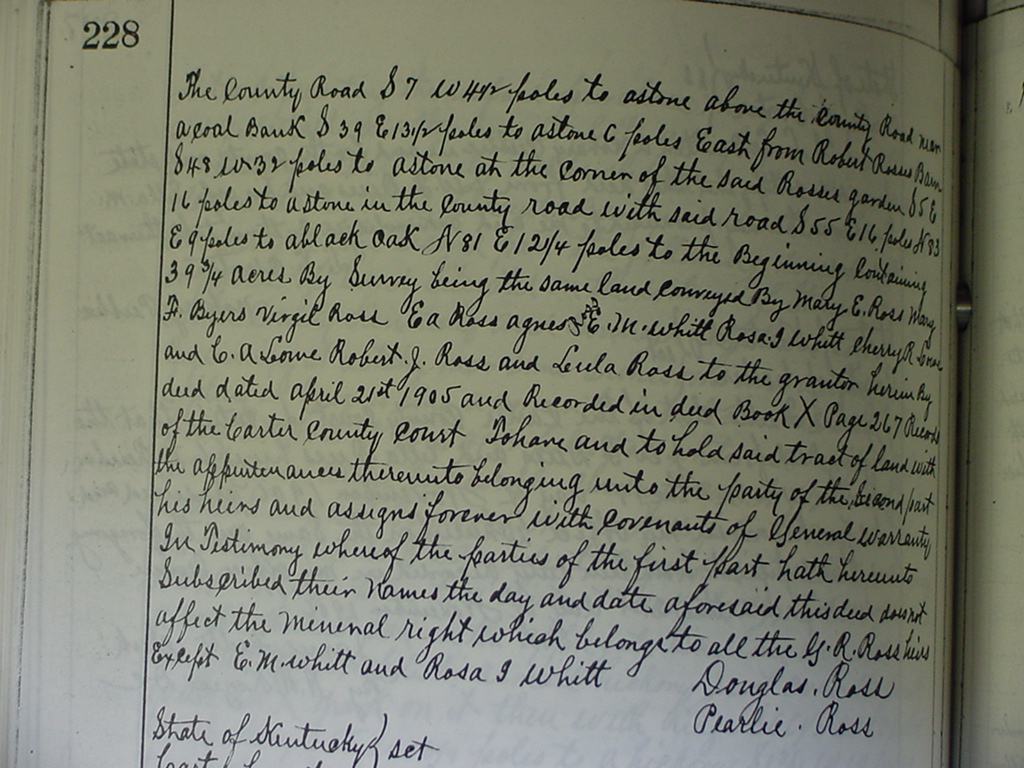 228
The County Road S 7 W 4 1/2 poles to astone above the County Road near
a coal Bank S 39 E 13 1/2 poles to astone 6 poles East from Robert Rosses Barn
S 48 W 32 poles to astone at the corner of the said Rosses garden S 5 E
16 poles to a stone in the County road with said road S 55 E 16 poles N 83
E 9 poles to ablack oak N 81 E 12 1/4 poles to the Beginning Containing
39 3/4 acres By Survey being the same land conveyed By Mary E. Ross Mary
F. Byers Virgil Ross Ea Ross agnes and E. M. Whitt Rosa. I Whitt Cherry R. Lowe
and C. A Lowe Robert. J. Ross and Lula Ross to the grantor herein By
deed dated april 21st 1905 and Recorded in deed Book X Page 267 Records
of the Carter County Court To have and to hold said tract of land with
the appurtenances thereunto belonging unto the party of the Second part
his heirs and assigns forever with Covenants of General warranty
In Testimony whereof the parties of the first part hath hereunto
Subscribed their names the day and date aforesaid this deed does not
affect the Mineral right which belongs to all the G. R. Ross heirs
Except E. M. Whitt and Rosa I Whitt
Douglas. Ross
Pearlie. Ross
State of Kentucky } set